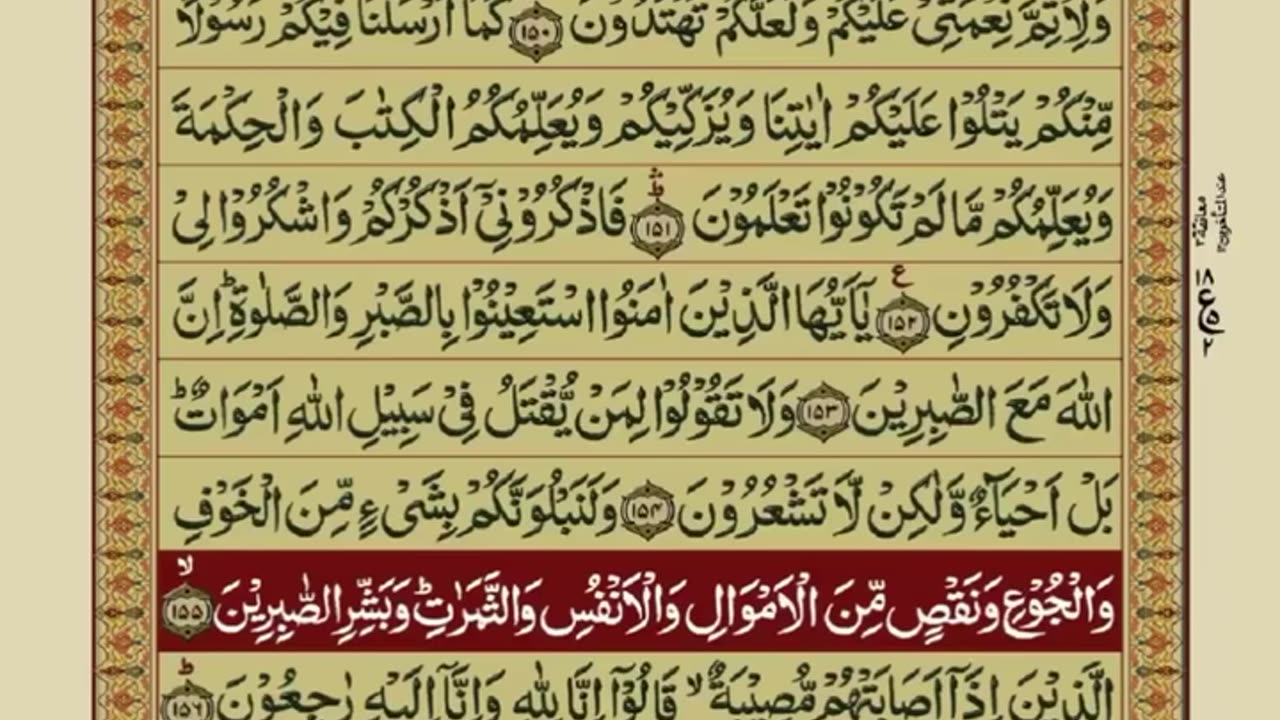 وَلِاُتِمَّ نِعْمَتِیْ عَلَیْكُمْ وَلَعَلَّكُمْ تَهْتَدُوْنَ ﴿۱۵۰﴾ كَمَاۤ اَرْسَلْنَا فِیْكُمْ رَسُوْلًا
مِّنْكُمْ یَتْلُوْا عَلَیْكُمْ اٰیٰتِنَا وَیُزَكِّیْكُمْ وَیُعَلِّمُكُمُ الْكِتٰبَ وَالْحِكْمَةَ
وَیُعَلِّمُكُمْ مَّا لَمْ تَكُوْنُوْا تَعْلَمُوْنَ ﴿۱۵۱﴾ فَاذْكُرُوْنِیْۤ اَذْكُرْكُمْ وَاشْكُرُوْا لِیْ
وَلَا تَكْفُرُوْنِ ﴿۱۵۲﴾ ع یٰۤاَیُّهَا الَّذِیْنَ اٰمَنُوا اسْتَعِیْنُوْا بِالصَّبْرِ وَالصَّلٰوةِ ؕ اِنَّ
اللّٰهَ مَعَ الصّٰبِرِیْنَ ﴿۱۵۳﴾ وَلَا تَقُوْلُوْا لِمَنْ یُّقْتَلُ فِیْ سَبِیْلِ اللّٰهِ اَمْوَاتٌ ؕ
بَلْ اَحْیَآءٌ وَّلٰكِنْ لَّا تَشْعُرُوْنَ ﴿۱۵۴﴾ وَلَنَبْلُوَنَّكُمْ بِشَیْءٍ مِّنَ الْخَوْفِ
وَالْجُوْعِ وَنَقْصٍ مِّنَ الْاَمْوَالِ وَالْاَنْفُسِ وَالثَّمَرٰتِ ؕ وَبَشِّرِ الصّٰبِرِیْنَ ﴿۱۵۵﴾ ۙ
الَّذِیْنَ اِذَاۤ اَصَابَتْهُمْ مُّصِیْبَةٌ ۙ قَالُوْۤا اِنَّا لِلّٰهِ وَاِنَّاۤ اِلَیْهِ رٰجِعُوْنَ ﴿۱۵۶﴾ ؕ
معانقة ۲
عند المتأخرین ۱۲
۱۸
ع
۲